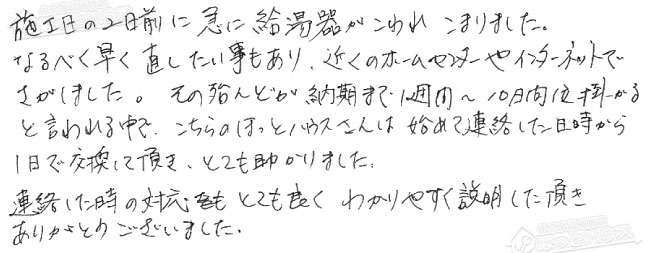 施工日の2日前に急に給湯器がこわれ こまりました。
なるべく早く直したい事もあり、近くのホームセンターやインターネットで
さがしました。その殆んどが納期まで1週間～10日間位掛かる
と言われる中で、こちらのほっとハウスさんは始めて連絡した日時から
1日で交換して頂き、とても助かりました。
連絡した時の対応もとても良く わかりやすく説明した頂き
ありがとうございました。